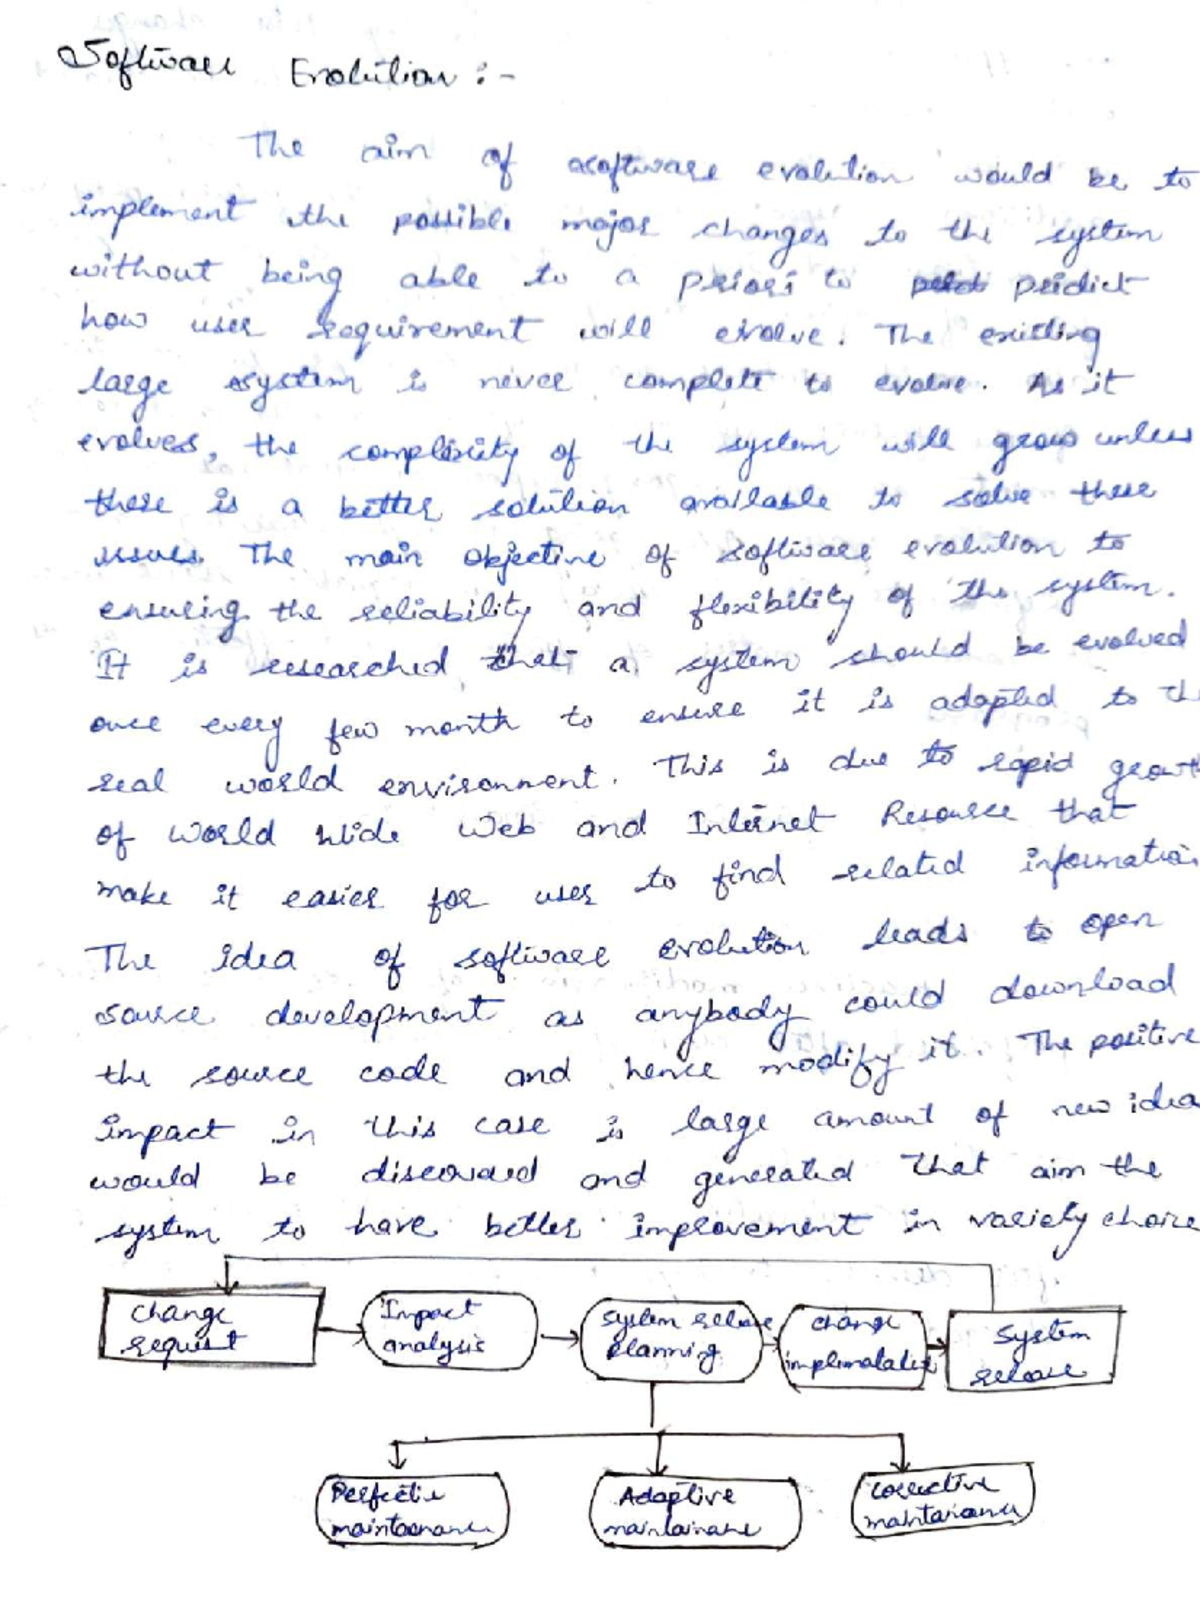 Software Evolution :-
The aim of asoftware evolution would be to
implement the possible major changes to the system
without being able to a priori to predict
how user requirement will evolve. The existing
large system is never complete to evolve. As it
evolves, the complexity of the system will grow unless
there is a better solution available to solve these
issues. The main objective of software evolution to
ensuring the reliability and flexibility of the system.
It is researched that a system should be evolved
once every few month to ensure it is adapted to the
real world environment. This is due to rapid growth
of World Wide Web and Internet Resource that
make it easier for user to find related information
The idea of software evolution leads to open
source development as anybody could download
the source code and hence modify it. The positive
impact in this case is large amount of new idea
would be discovered and generated that aim the
system to have better improvement in variety choice
change
request
Impact
analysis
system release
planning
change
System
release
Perfective
Adaptive
Corrective